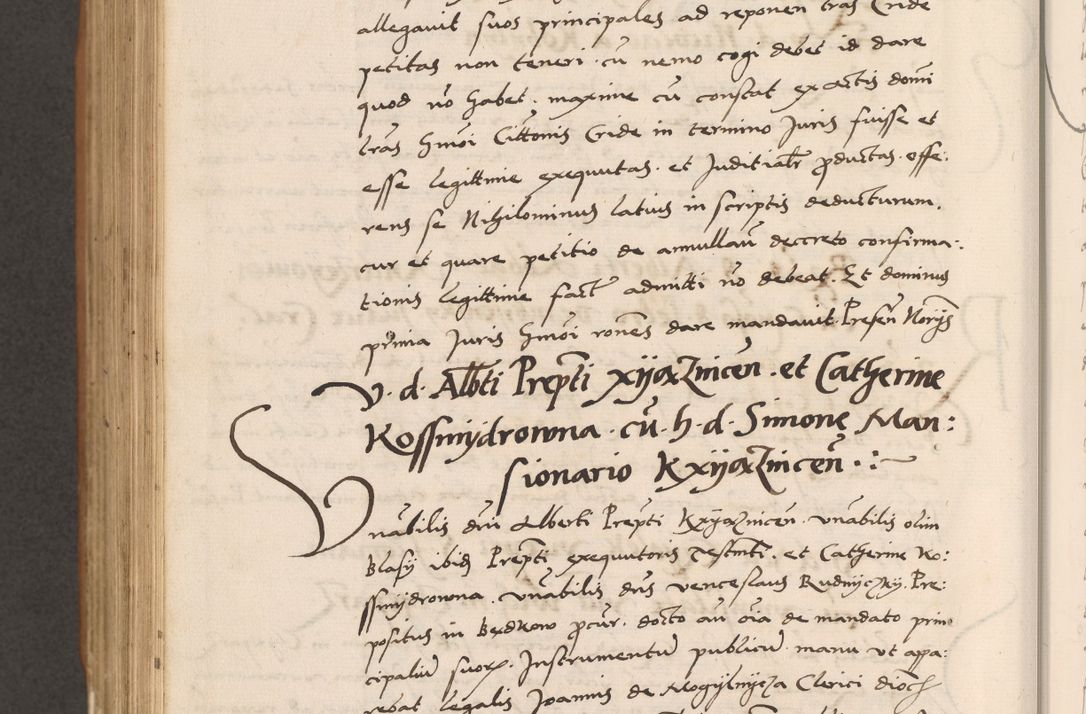 allegavit suos principales ad reponen tras Cride
petitas non teneri. cu nemo cogi debet id dare
quod no habet. maxime cu constat ex actis domi
tras hmoi Cittonis Cride in termino Juris fuisse et
esse legittime exequutas. et Juditialr productas. offe:
rens se Nihilominus latius in scriptis deducturum.
cur et quare petitio de annullau decreto confirma:
tionis legittime fact admitti no debeat. Et dominus
prima Juris hmoi rones dare mandavit Presen
V. d. Albti Prepti et Catherine
Kossmydrowna. cu. h. d. Simone Man:
sionario
Vnabilis dni Alberti Prepti vnabilis olim
Blasy ibid Prepti exequutoris Testmti. et Catherine Ko:
ssmydrowna. vnabilis dns venceslaus Rudnyczky. Pre:
positus in Bedkow procur. docto au oia de mandato prin
cipaliu suor. Instrumentu publicu manu vt appa:
rebat legalis Joannis de Mogylnycza Clerici dioc